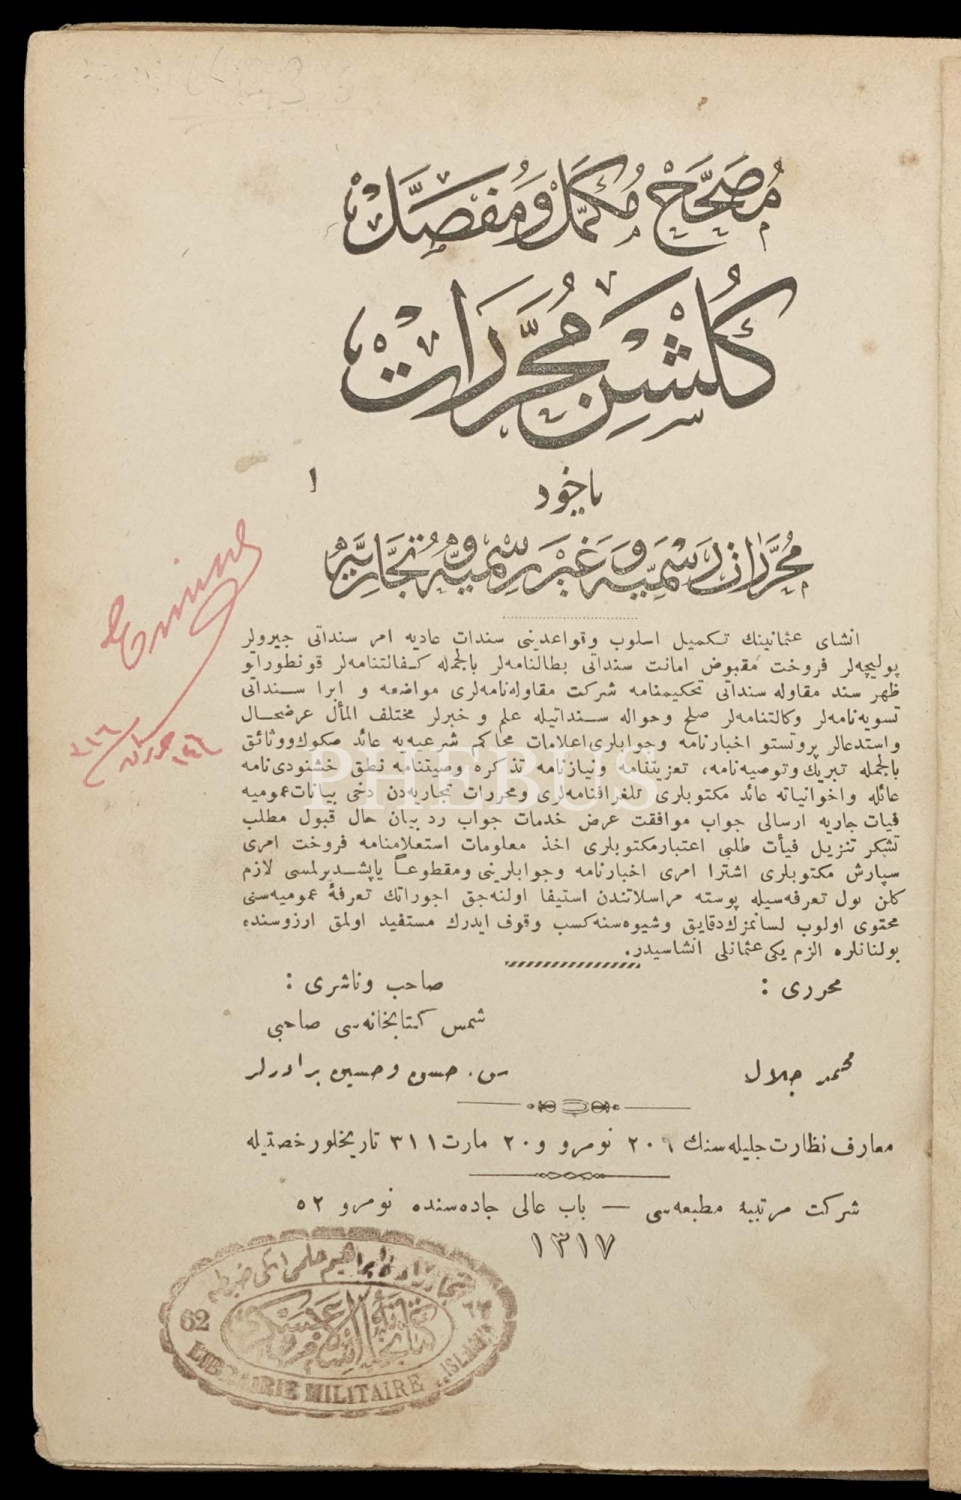 مُصَحَّحْ مُكَمَّلْ وَمُفَصَّلْ
كُلْشَنِ مُحَرَّرَاتْ
ياخود
مُحَرَّرَاتِ رَسْمِيَّه وَغَيْرِ رَسْمِيَّه وَتُجَّارِيَّه
١
انشای عثمانینك تكمیل اسلوب وقواعدینی سندات عادیه امر سنداتی جیرولر
پولیچه‌لر فروخت مقبوض امانت سنداتی بطالنامه‌لر بالجمله كفالتنامه‌لر قونطوراتو
ظهر سند مقاوله سنداتی تحكیمنامه شركت مقاوله‌نامه‌لری مواضعه و ابرا سنداتی
تسویه‌نامه‌لر وكالتنامه‌لر صلح وحواله سنداتیله علم و خبرلر مختلف المأل عرضحال
واستدعالر پروتستو اخبارنامه وجوابلری اعلامات محاكم شرعیه‌یه عائد صكوك ووثائق
بالجمله تبریك وتوصیه‌نامه، تعزیتنامه ونیازنامه تذكره وصیتنامه نطق خشنودی‌نامه
عائله واخوانیاته عائد مكتوبلری تلغرافنامه‌لری ومحررات تجاریه‌دن دخی بیانات عمومیه
فیات جاریه ارسالی جواب موافقت عرض خدمات جواب رد بیان حال قبول مطلب
تشكر تنزیل فیأت طلبی اعتبار مكتوبلری اخذ معلومات استعلامنامه فروخت امری
سپارش مكتوبلری اشترا امری اخبارنامه وجوابلرینی ومقطوعاً یاپشدیرلمسی لازم
كلن پول تعرفه‌سیله پوسته مراسلاتندن استیفا اولنه‌جق اجوراتك تعرفهٔ عمومیه‌سنی
محتوی اولوب لسانمزك دقایق وشیوه‌سنه كسب وقوف ایدرك مستفید اولمق ارزوسنده
بولنانلره الزم یكی عثمانلی انشاسیدر.
محرری :
محمد جلال
صاحب وناشری :
شمس كتابخانه‌سی صاحبی
س. حسن وحسین برادرلر
معارف نظارت جلیله‌سنك ٢٠٦ نومرو و ٢٠ مارت ٣١١ تاریخلو رخصتیله
شركت مرتبیه مطبعه‌سی — باب عالی جاده‌سنده نومرو ٥٢
١٣١٧
Emine
PHEBUS
كتابخانهٔ اسلام وعسكری
62
٦٢
LIBRAIRIE MILITAIRE ISLAM